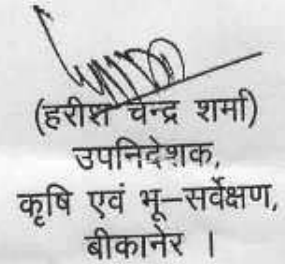 (हरीश चन्द्र शर्मा)
उपनिदेशक,
कृषि एवं भू-सर्वेक्षण,
बीकानेर ।